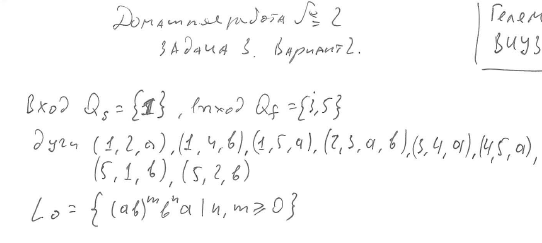 Домашняя работа № 2
Задача 3. Вариант 2.
Гелем
ВИУЗ
Вход Qs = {1}, выход Qf = {3,5}
дуги (1,2,a), (1,4,b), (1,5,a), (2,3,a,b), (3,4,a), (4,5,a),
(5,1,b), (5,2,b)
L0 = { (ab)^m b^n a | n, m ≥ 0 }